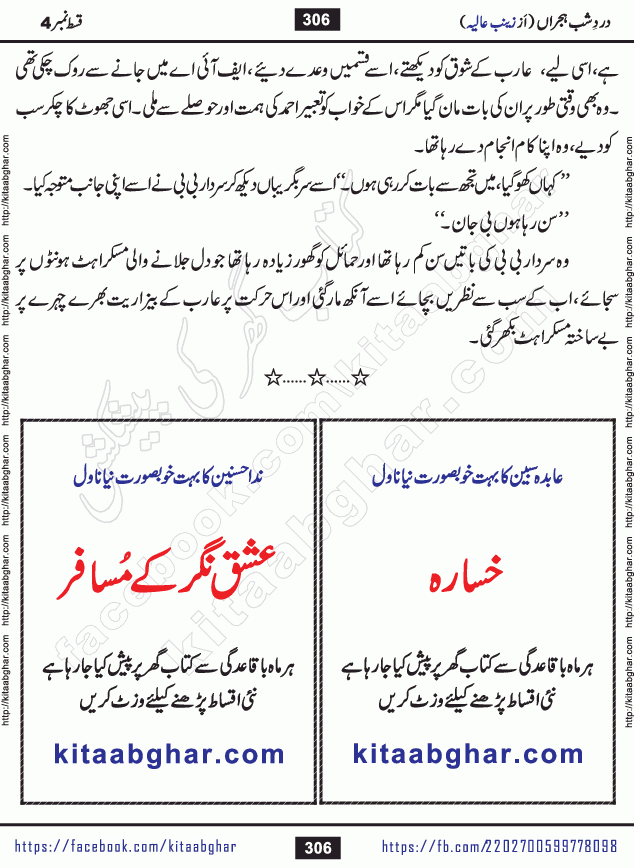 دردِ شب ہجراں (از زینب عالیہ)
306
قسط نمبر 4
ہے، اسی لیے، عارب کے شوق کو دیکھتے، اسے قسمیں وعدے دیئے، ایف آئی اے میں جانے سے روک چکی تھی
۔ وہ بھی وقتی طور پر ان کی بات مان گیا مگر اس کے خواب کو تعبیر احمد کی ہمت اور حوصلے سے ملی۔ اسی جھوٹ کا چکر سب
کو دیے، وہ اپنا کام انجام دے رہا تھا۔
’’کہاں کھو گیا، میں تجھ سے بات کر رہی ہوں۔‘‘ اسے سر بگریباں دیکھ کر سردار بی بی نے اسے اپنی جانب متوجہ کیا۔
’’سن رہا ہوں بی جان۔‘‘
وہ سردار بی بی کی باتیں سن کم رہا تھا اور حمائل کو گھور زیادہ رہا تھا جو دل جلانے والی مسکراہٹ ہونٹوں پر
سجائے، اب کے سب سے نظریں بچائے اسے آنکھ مار گئی اور اس حرکت پر عارب کے بیزاریت بھرے چہرے پر
بے ساختہ مسکراہٹ بکھر گئی۔
☆......☆......☆
عابدہ سبین کا بہت خوبصورت نیا ناول
خسارہ
ہر ماہ باقاعدگی سے کتاب گھر پر پیش کیا جا رہا ہے
نئی اقساط پڑھنے کیلئے وزٹ کریں
kitaabghar.com
ندا حسنین کا بہت خوبصورت نیا ناول
عشق نگر کے مُسافر
ہر ماہ باقاعدگی سے کتاب گھر پر پیش کیا جا رہا ہے
نئی اقساط پڑھنے کیلئے وزٹ کریں
kitaabghar.com
http://kitaabghar.com http://kitaabghar.com http://kitaabghar.com http://kitaabghar.com http://kitaabghar.com http://kitaabghar.com
http://kitaabghar.com http://kitaabghar.com http://kitaabghar.com http://kitaabghar.com http://kitaabghar.com http://kitaabghar.com
کتاب گھر کی پیشکش
facebook.com/kitaabghar
kitaabghar.com
https://facebook.com/kitaabghar
306
https://fb.com/2202700599778098